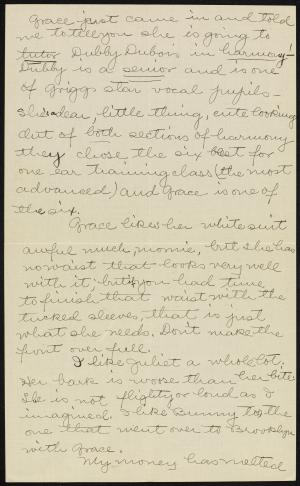 Grace just came in and told
me to tell you she is going to
tutor Dubby Dubois in harmony -
Dubby is a senior and is one
of Griggs star vocal pupils -
She's a dear, little thing, cute looking
Out of both sections of harmony
they chose the six best for
one ear training class (the most
advanced) and Grace is one of
the six.
Grace likes her white suit
awful much, momie, but she has
no waist that looks very well
with it, but if you had time
to finish that waist with the
tucked sleeves, that is just
what she needs. Don't make the
front over full.
I like Juliet a whole lot.
Her bark is worse than her bite
She is not flighty or loud as I
imagined. I like Bunny too, the
one that went over to Brooklyn
with Grace.
My money has melted